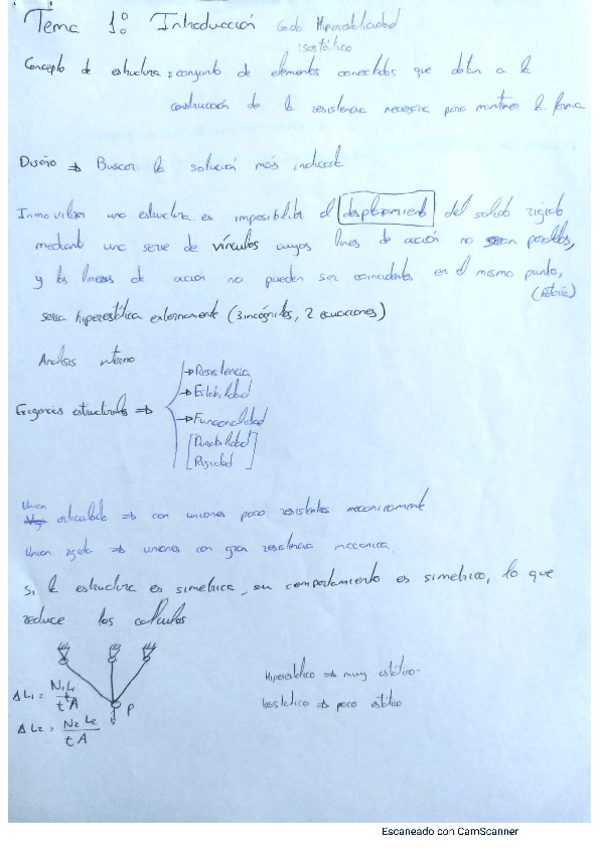 Tema 1: Introducción Grado Hiperestaticidad
isostático
Concepto de estructura: conjunto de elementos conectados que dotan a la
construcción de la resistencia necesaria para mantener la forma
Diseño ⇒ Buscar la solución más indicada
Inmovilizar una estructura es imposibilitar el desplazamiento del solido rigido
mediante una serie de vínculos cuyas lineas de acción no sean paralelas,
y las lineas de acción no pueden ser coincidentes en el mismo punto,
seria hiperestática externamente (3 incógnitas, 2 ecuaciones)
Analisis interno
Exigencias estructurales ⇒
→ Resistencia
→ Estabilidad
→ Funcionalidad
[Durabilidad]
[Rigidad]
Union articulada ⇒ con uniones poco resistentes mecanicamente
Union rigida ⇒ uniones con gran resistencia mecanica.
Si la estructura es simetrica, su comportamiento es simetrico, lo que
reduce los calculos
ΔL₁ = N₁L₁ / tA
P
ΔL₂ = N₂ L₂ / tA
Hiperestático ⇒ muy estático.
Isostático ⇒ poco estático
Escaneado con CamScanner